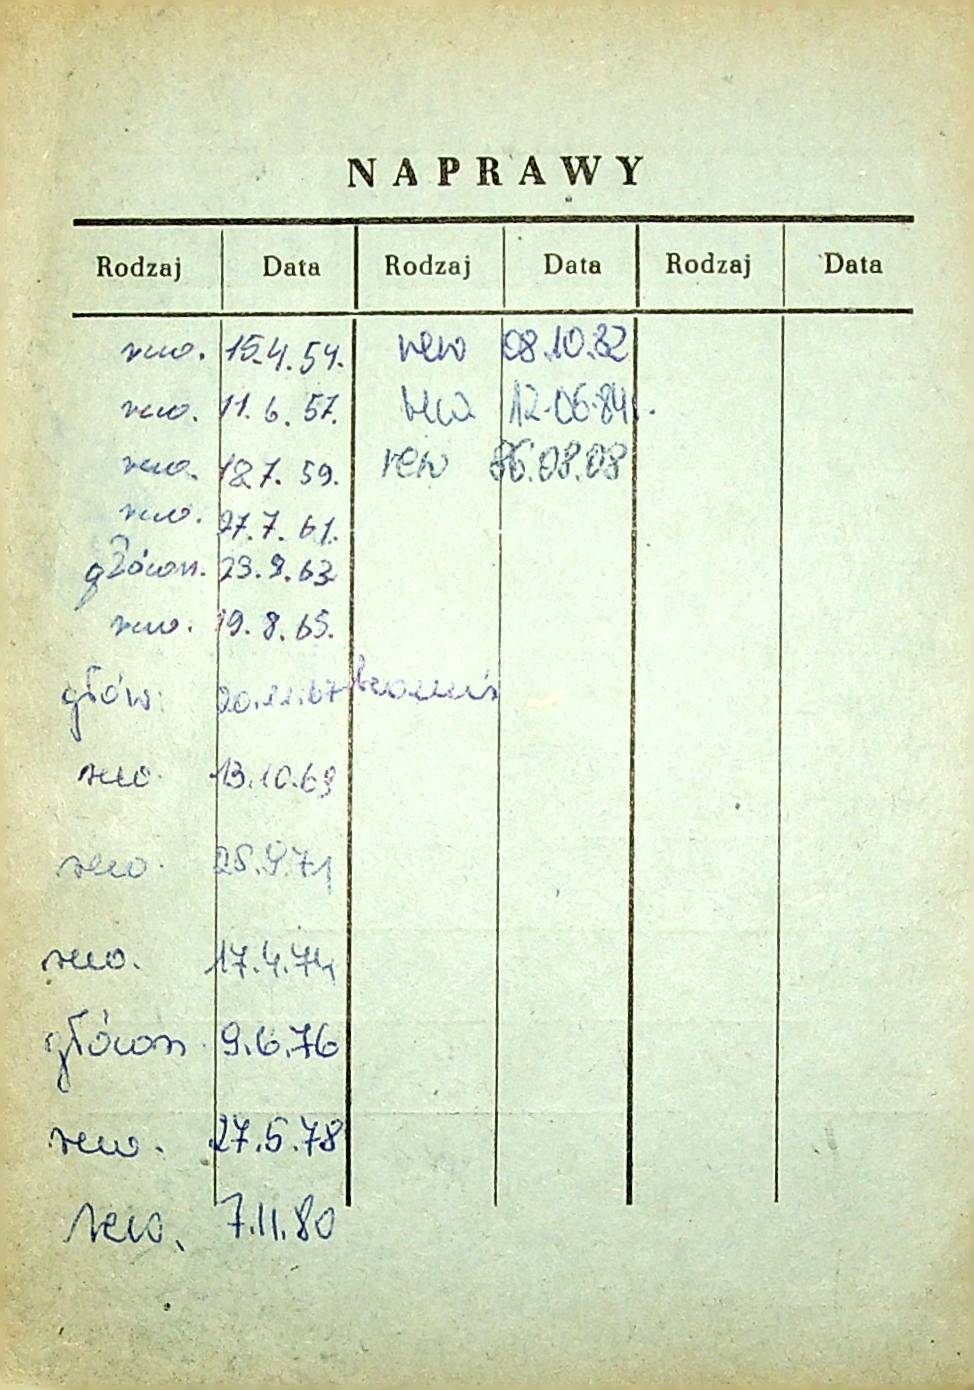 NAPRAWY
Rodzaj Data Rodzaj Data Rodzaj Data
rew. 15.4.54. rew 08.10.82
rew. 11.6.57. rew 12.06.84.
rew. 18.7.59. rew 86.08.08
rew. 27.7.61.
główn. 23.9.63
rew. 19.8.65.
głów. 20.11.67
rew. 13.10.69
rew. 25.9.71
rew. 17.4.74
główn. 9.6.76
rew. 27.5.78
rew. 7.11.80